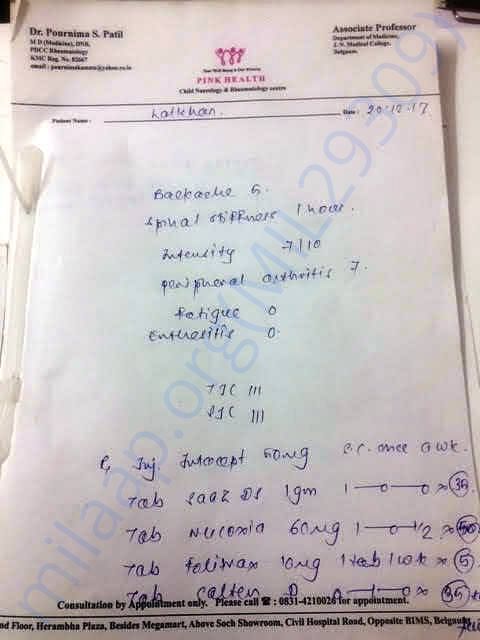 Dr. Pournima S. Patil
M D (Medicine), DNB,
PDCC Rheumatology
KMC Reg. No. 82667
Associate Professor
Department of Medicine,
J. N. Medical College,
Belgaum.
PINK HEALTH
Child Neurology & Rheumatology centre
Patient Name :
Date : 20.12.17
Backache 5.
Spinal stiffness 1 hour.
Intensity 7/10
peripheral arthritis 7.
Fatigue 0
Enthesitis 0.
TJC III
SJC III
Inj. Intacept 50mg S.C. once a wk.
Tab Saaz DS 1gm 1—0—0 x 35
Tab Nucoxia 60mg 1—0—1/2 x
Tab Folitrax 10mg 1 tab 1 wk x 5
Tab D 0—1—0 x 35
Consultation by Appointment only. Please call ☎ : 0831-4210026 for appointment.
nd Floor, Herambha Plaza, Besides Megamart, Above Soch Showroom, Civil Hospital Road, Opposite BIMS, Belgaum
milaap.org(MIL293091